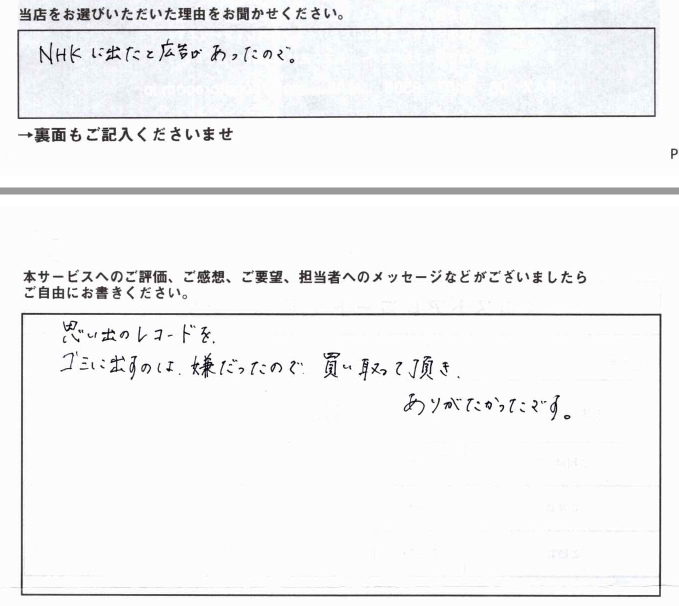 当店をお選びいただいた理由をお聞かせください。
NHKに出たと広告があったので。
→裏面もご記入くださいませ
P
本サービスへのご評価、ご感想、ご要望、担当者へのメッセージなどがございましたら
ご自由にお書きください。
思い出のレコードを、
ゴミに出すのは、嫌だったので、買い取って頂き、
ありがたかったです。